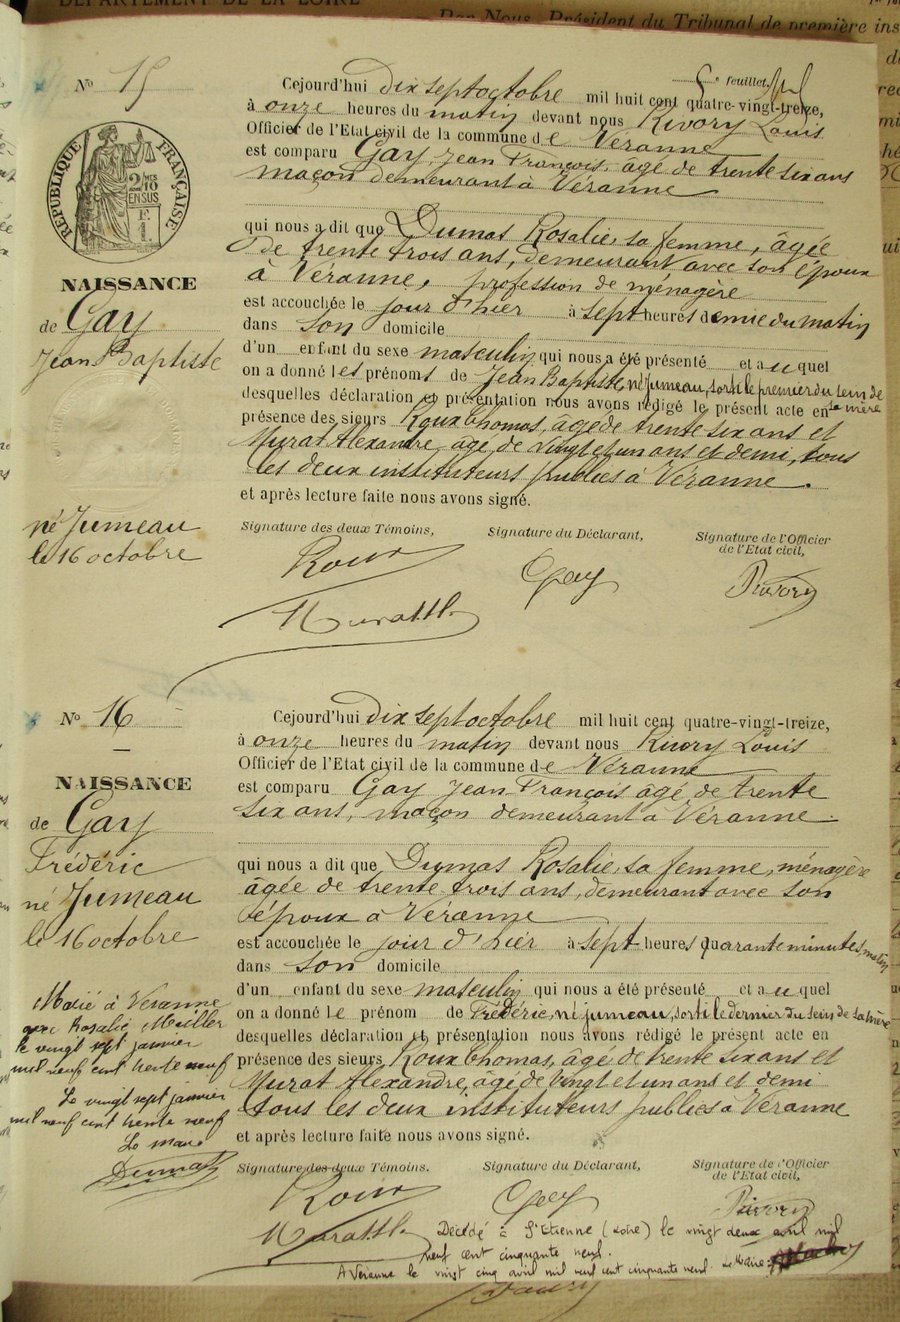 DÉPARTEMENT DE LA LOIRE
Par Nous, Président du Tribunal de première ins
5e feuillet
Nº 15
RÉPUBLIQUE FRANÇAISE
2/10 EN SUS
F. 1
NAISSANCE
de Gay
Jean Baptiste
né Jumeau
le 16 octobre
Cejourd'hui dix sept octobre mil huit cent quatre-vingt-treize,
à onze heures du matin devant nous Rivory Louis
Officier de l'Etat civil de la commune de Véranne
est comparu Gay, Jean François, âgé de trente six ans
maçon demeurant à Véranne
qui nous a dit que Dumas Rosalie, sa femme, âgée
de trente trois ans, demeurant avec son époux
à Véranne, profession de ménagère
est accouchée le jour d'hier à sept heures du matin
dans son domicile
d'un enfant du sexe masculin qui nous a été présenté et auquel
on a donné les prénoms de Jean Baptiste, né jumeau, sorti le premier du sein de
sa mère
desquelles déclaration et présentation nous avons rédigé le présent acte en
présence des sieurs Roux Thomas, âgé de trente six ans et
Murat Alexandre, âgé de vingt et un ans et demi, tous
les deux instituteurs publics à Véranne.
et après lecture faite nous avons signé.
Signature des deux Témoins, Signature du Déclarant, Signature de l'Officier
de l'Etat civil,
Roux Gay Rivory
Murat
Nº 16
NAISSANCE
de Gay
Frédéric
né Jumeau
le 16 octobre
Marié à Véranne
avec Rosalie
le vingt sept janvier
mil neuf cent trente neuf
Le vingt sept janvier
mil neuf cent trente neuf
Le maire
Dumas
Cejourd'hui dix sept octobre mil huit cent quatre-vingt-treize,
à onze heures du matin devant nous Rivory Louis
Officier de l'Etat civil de la commune de Véranne
est comparu Gay Jean François âgé de trente
six ans, maçon demeurant à Véranne.
qui nous a dit que Dumas Rosalie, sa femme, ménagère
âgée de trente trois ans, demeurant avec son
époux à Véranne
est accouchée le jour d'hier à sept heures quarante minutes, matin
dans son domicile
d'un enfant du sexe masculin qui nous a été présenté et auquel
on a donné le prénom de Frédéric, né jumeau, sorti le dernier du sein de sa mère
desquelles déclaration et présentation nous avons rédigé le présent acte en
présence des sieurs Roux Thomas, âgé de trente six ans et
Murat Alexandre, âgé de vingt et un ans et demi
tous les deux instituteurs publics à Véranne
et après lecture faite nous avons signé.
Signature des deux Témoins. Signature du Déclarant, Signature de l'Officier
de l'Etat civil,
Roux Gay Rivory
Murat
Décédé à St Etienne (Loire) le vingt deux avril mil
neuf cent cinquante neuf.
A Véranne le vingt cinq avril mil neuf cent cinquante neuf. Le Maire: